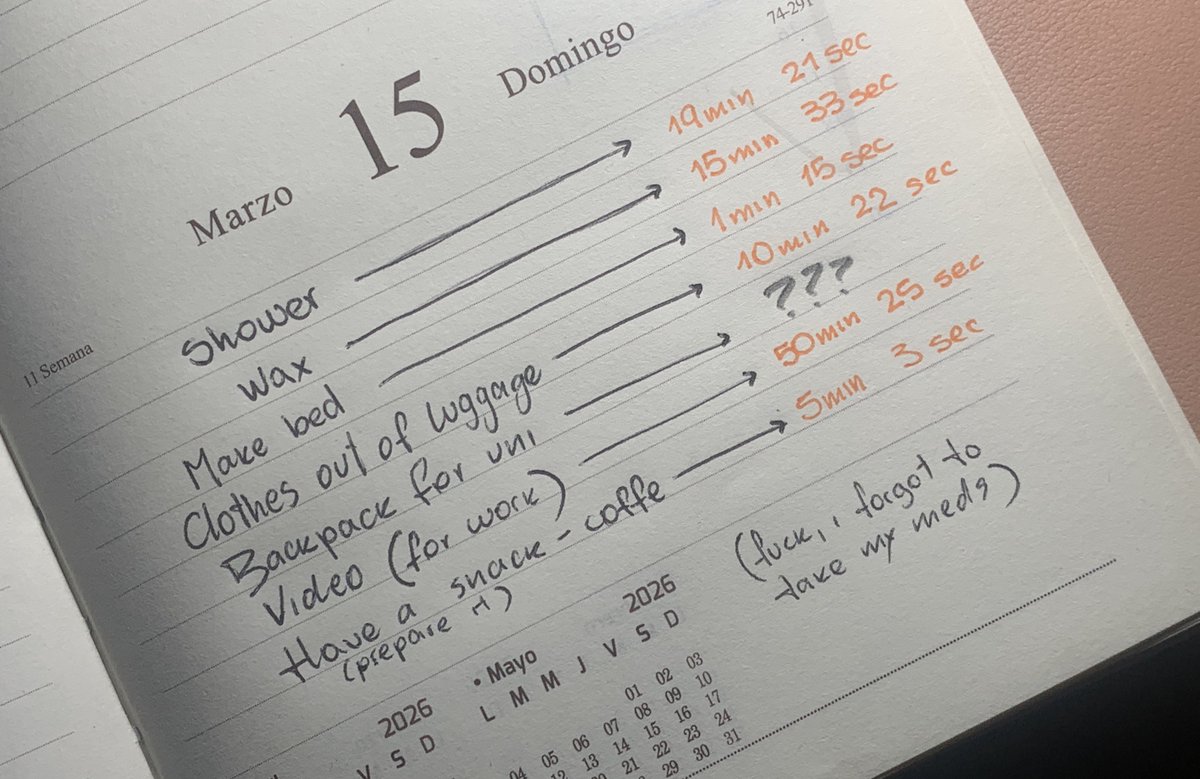 74-291
Marzo 15 Domingo
11 Semana
shower → 19min 21sec
wax → 15min 33sec
Make bed → 1min 15sec
Clothes out of luggage → 10min 22 sec
Backpack for uni → ???
Video (for work) → 50min 25 sec
Have a snack - coffe → 5min 3 sec
(prepare it)
(fuck, i forgot to
take my meds)
2026 • Mayo 2026
V S D L M M J V S D
01 02 03
04 05 06 07 08 09 10
12 13 14 15 16 17
20 21 22 23 24
29 30 31